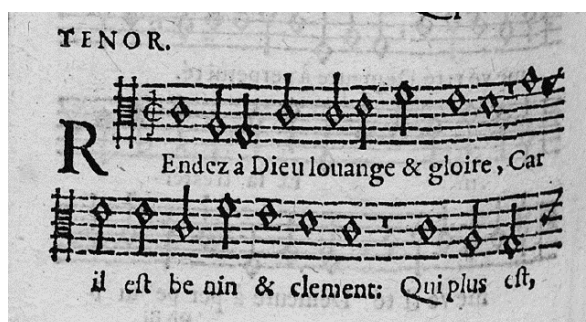 TENOR.
R Endez à Dieu louange & gloire, Car
il est be nin & clement: Qui plus est,